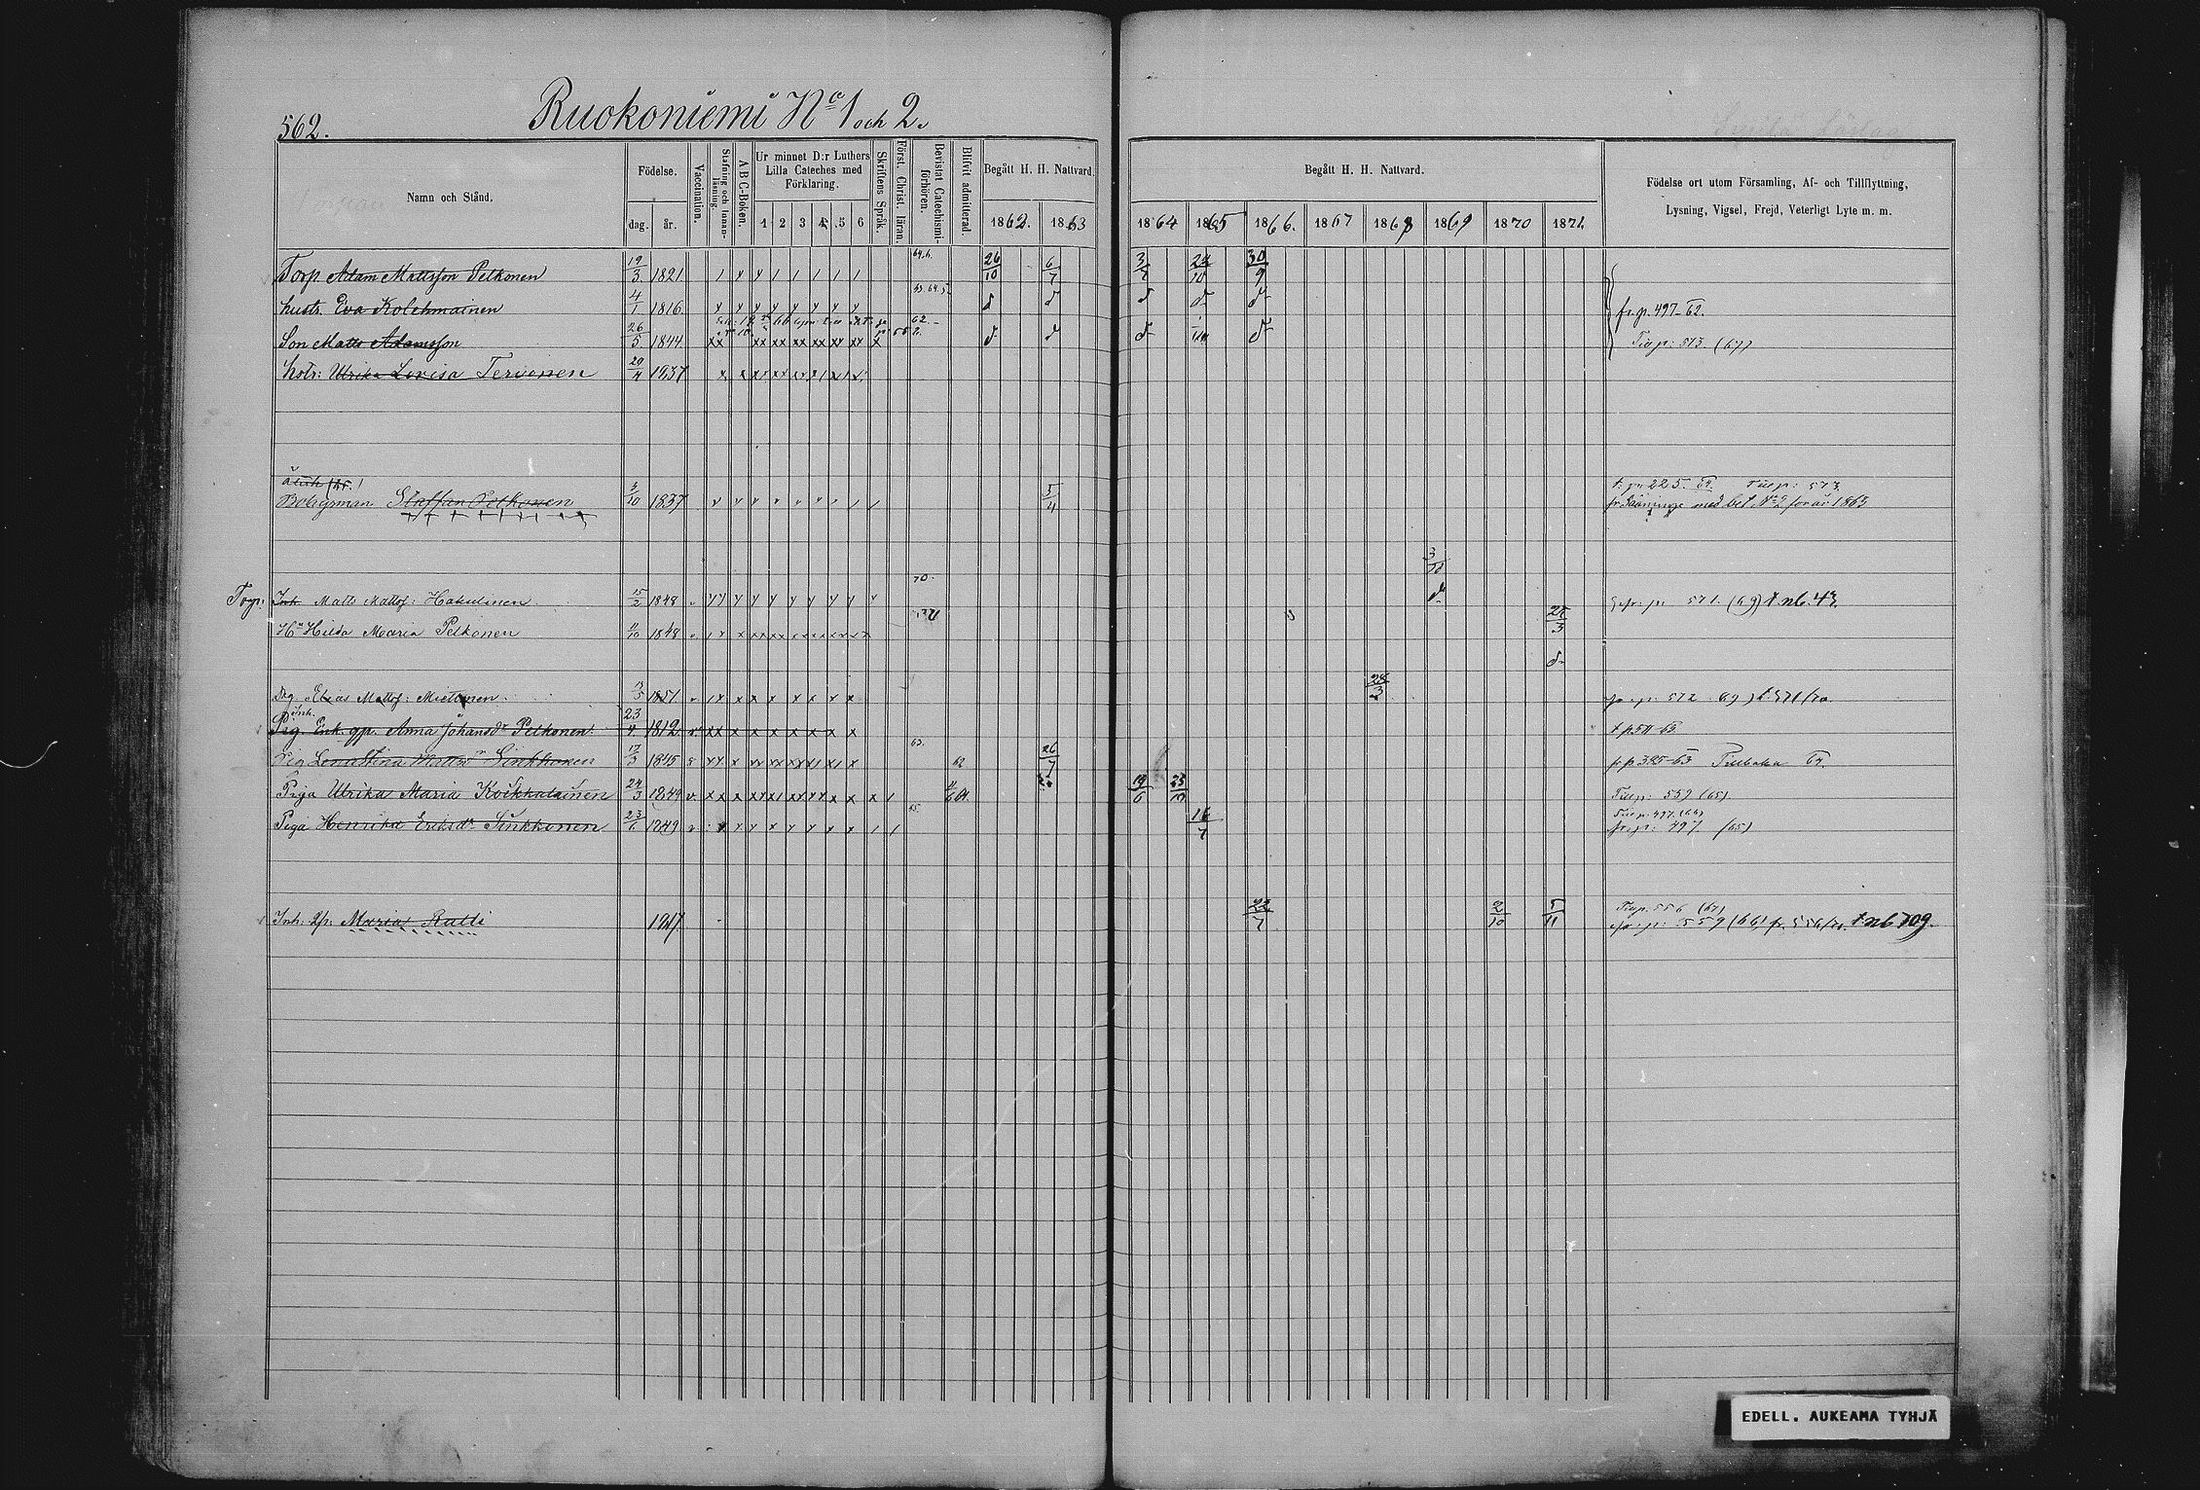 562.
Ruokoniemi No 1 och 2.
Namn och Stånd.
Födelse.
dag. år.
Vaccination.
Stafning och Innanläsning.
A B C-Boken.
Ur minnet D:r Luthers Lilla Cateches med Förklaring.
1 2 3 4 5 6
Skriftens Språk.
Först. Christ. läran.
Bevistat Catechismiförhören.
Blifvit admitterad.
Begått H. H. Nattvard.
1862. 1863
Begått H. H. Nattvard.
1864 1865 1866. 1867 1868 1869 1870 1871
Födelse ort utom Församling, Af- och Tillflyttning,
Lysning, Vigsel, Frejd, Veterligt Lyte m. m.
Torp. Adam Mattsson Pelkonen 19/3 1821 26/10 6/7 3/7 24/10 30/9
hustr. Eva Kolehmainen 4/1 1816 fr. p. 497-62.
Son Matts Adamsson 26/5 1844 Tia p: 573. (67)
hstr: Ulrika Lovisa Tervonen 29/4 1837
Bolagsman Staffan Pelkonen 3/10 1837 5/4
fr Sääminge med bet. No 2 för år 1863
Torp: Inh. Matts Mattsf: Hakulinen 15/2 1848 3/10 571. (69) t. nb. 43.
Ha Hilda Maria Pelkonen 11/10 1848 25/3
Drg. Elias Mattsf: Miettinen 13/5 1851 28/3 fr. p: 572 69) t. 571/70.
Inh.
Pig. Enk. gp. Anna Johansdr Pelkonen 23/4 1812 t p 511-65
Pig Lena Stina Mattsdr Sinkkonen 17/3 1845 63. 62 26/7 fr p 325-63 Tillbaka 64.
Piga Ulrika Maria Koikkalainen 24/3 1849 64. 19/6 25/10 Tia p: 559 (65)
Tia p: 497. (66)
Piga Henrika Eriksdr Sinkkonen 23/6 1849 65 16/7 fr. p: 497 (65)
Tia p. 556 (67)
Inh: Maria Ratti 22/7 2/10 5/11 fr: p: 559 (66) fr. 556/70. t. nb 709.
EDELL. AUKEAMA TYHJÄ